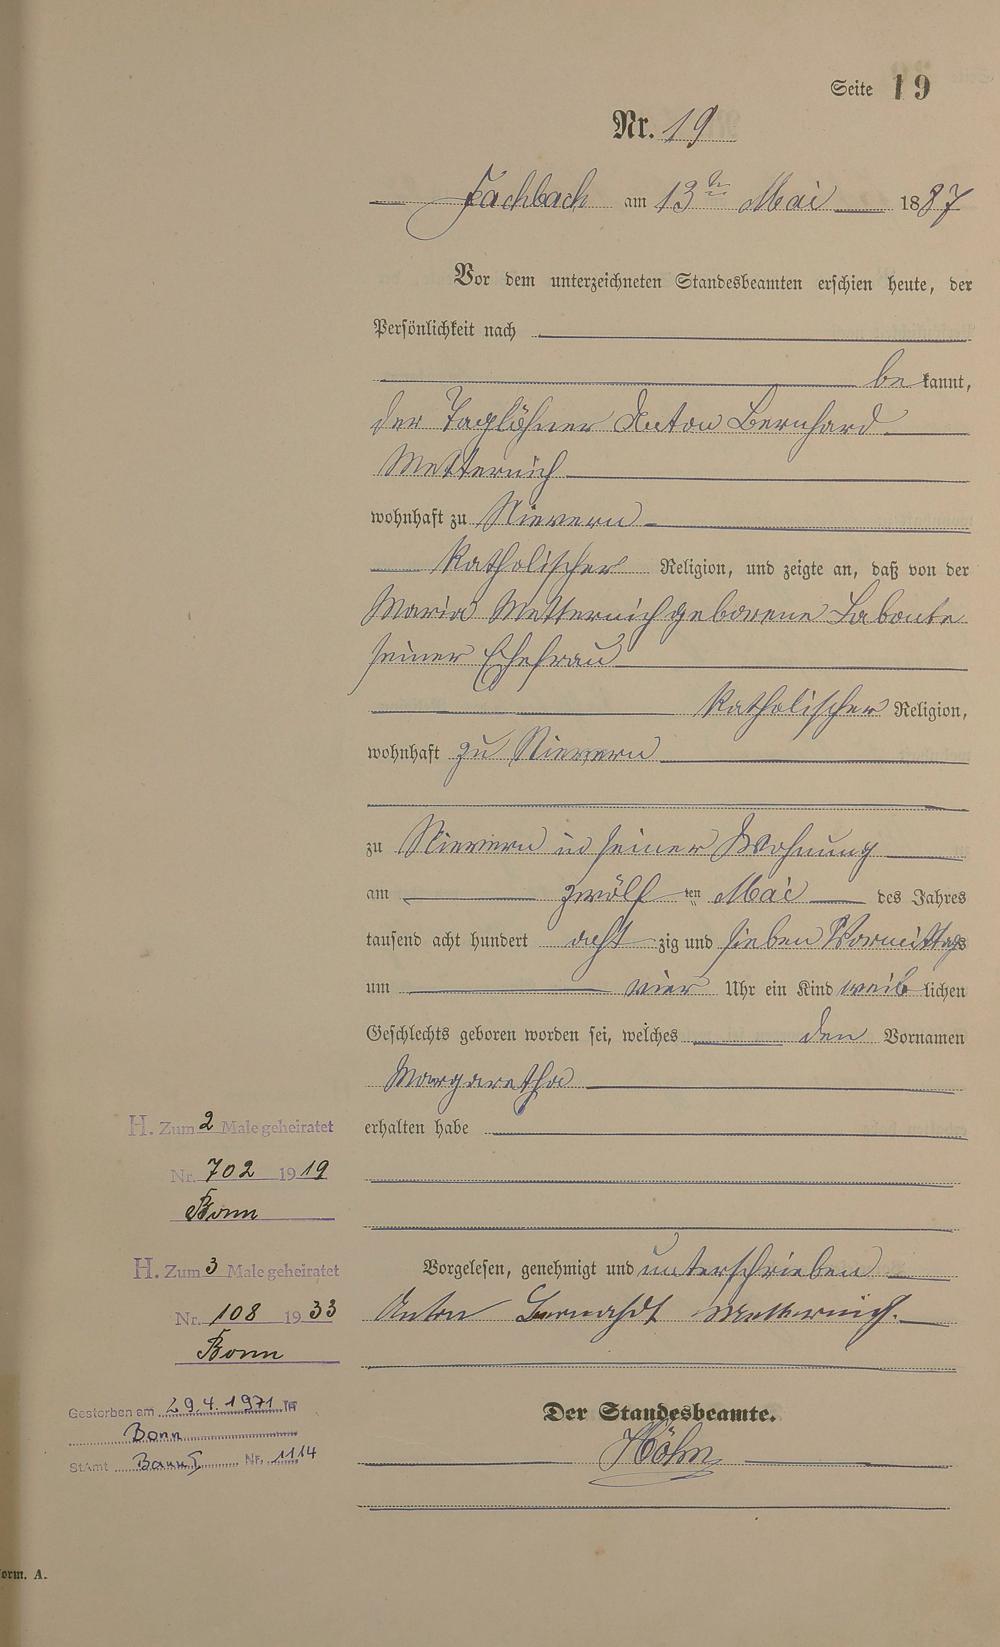 Seite 19
Nr. 19
Fachbach am 13ten Mai 1887
Vor dem unterzeichneten Standesbeamten erschien heute, der
Persönlichkeit nach
bekannt,
der Taglöhner Anton Bernhard
Metternich
wohnhaft zu Nievern
katholischer Religion, und zeigte an, daß von der
Maria Metternich geborene Labonte
seiner Ehefrau
katholischer Religion,
wohnhaft zu Nievern
zu Nievern in seiner Wohnung
am zwölften Mai des Jahres
tausend acht hundert achtzig und sieben Vormittags
um vier Uhr ein Kind weiblichen
Geschlechts geboren worden sei, welches den Vornamen
Margaretha
erhalten habe
Vorgelesen, genehmigt und unterschrieben
Anton Bernahdt Metternich.
Der Standesbeamte.
Höhn
H. Zum 2 Male geheiratet
Nr. 702 1919
Bonn
H. Zum 3 Male geheiratet
Nr. 108 1933
Bonn
Gestorben am 29.4.1971
Bonn
StAmt Bonn I Nr. 1114
orm. A.